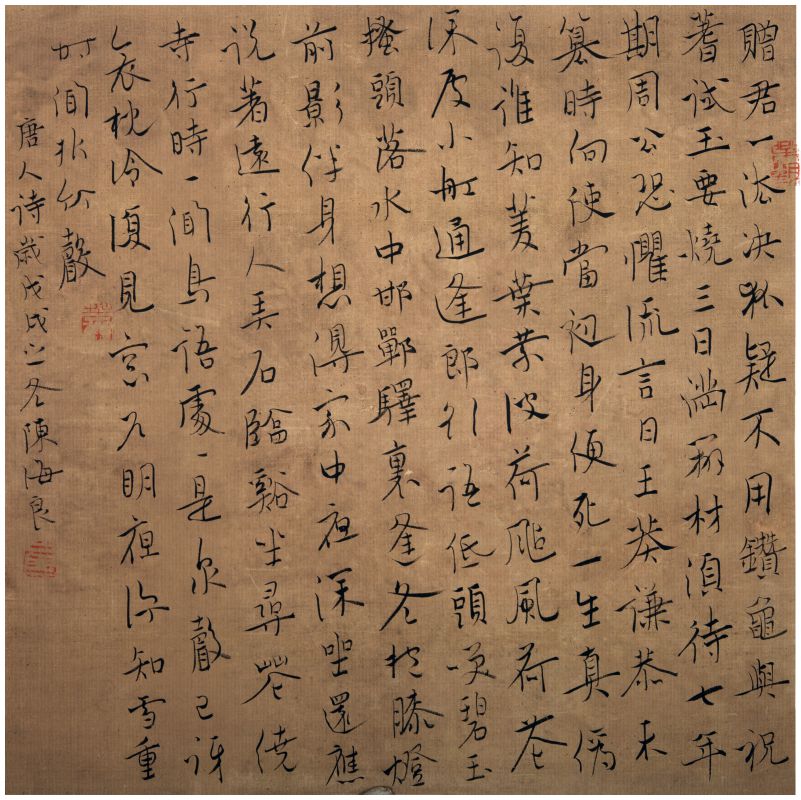 贈君一法決狐疑不用鑽龜與祝
蓍試玉要燒三日滿辨材須待七年
期周公恐懼流言日王莽謙恭未
篡時向使當初身便死一生真偽
復誰知菱葉縈波荷颭風荷花
深處小船通逢郎欲語低頭笑碧玉
搔頭落水中邯鄲驛裏逢冬抱膝燈
前影伴身想得家中夜深坐還應
说著遠行人弄石臨谿坐尋花繞
寺行時〻聞鳥語處〻是泉聲已訝
衾枕冷復見窗戶明夜深知雪重
时聞折竹聲
唐人诗歲戊戌之冬陳海良